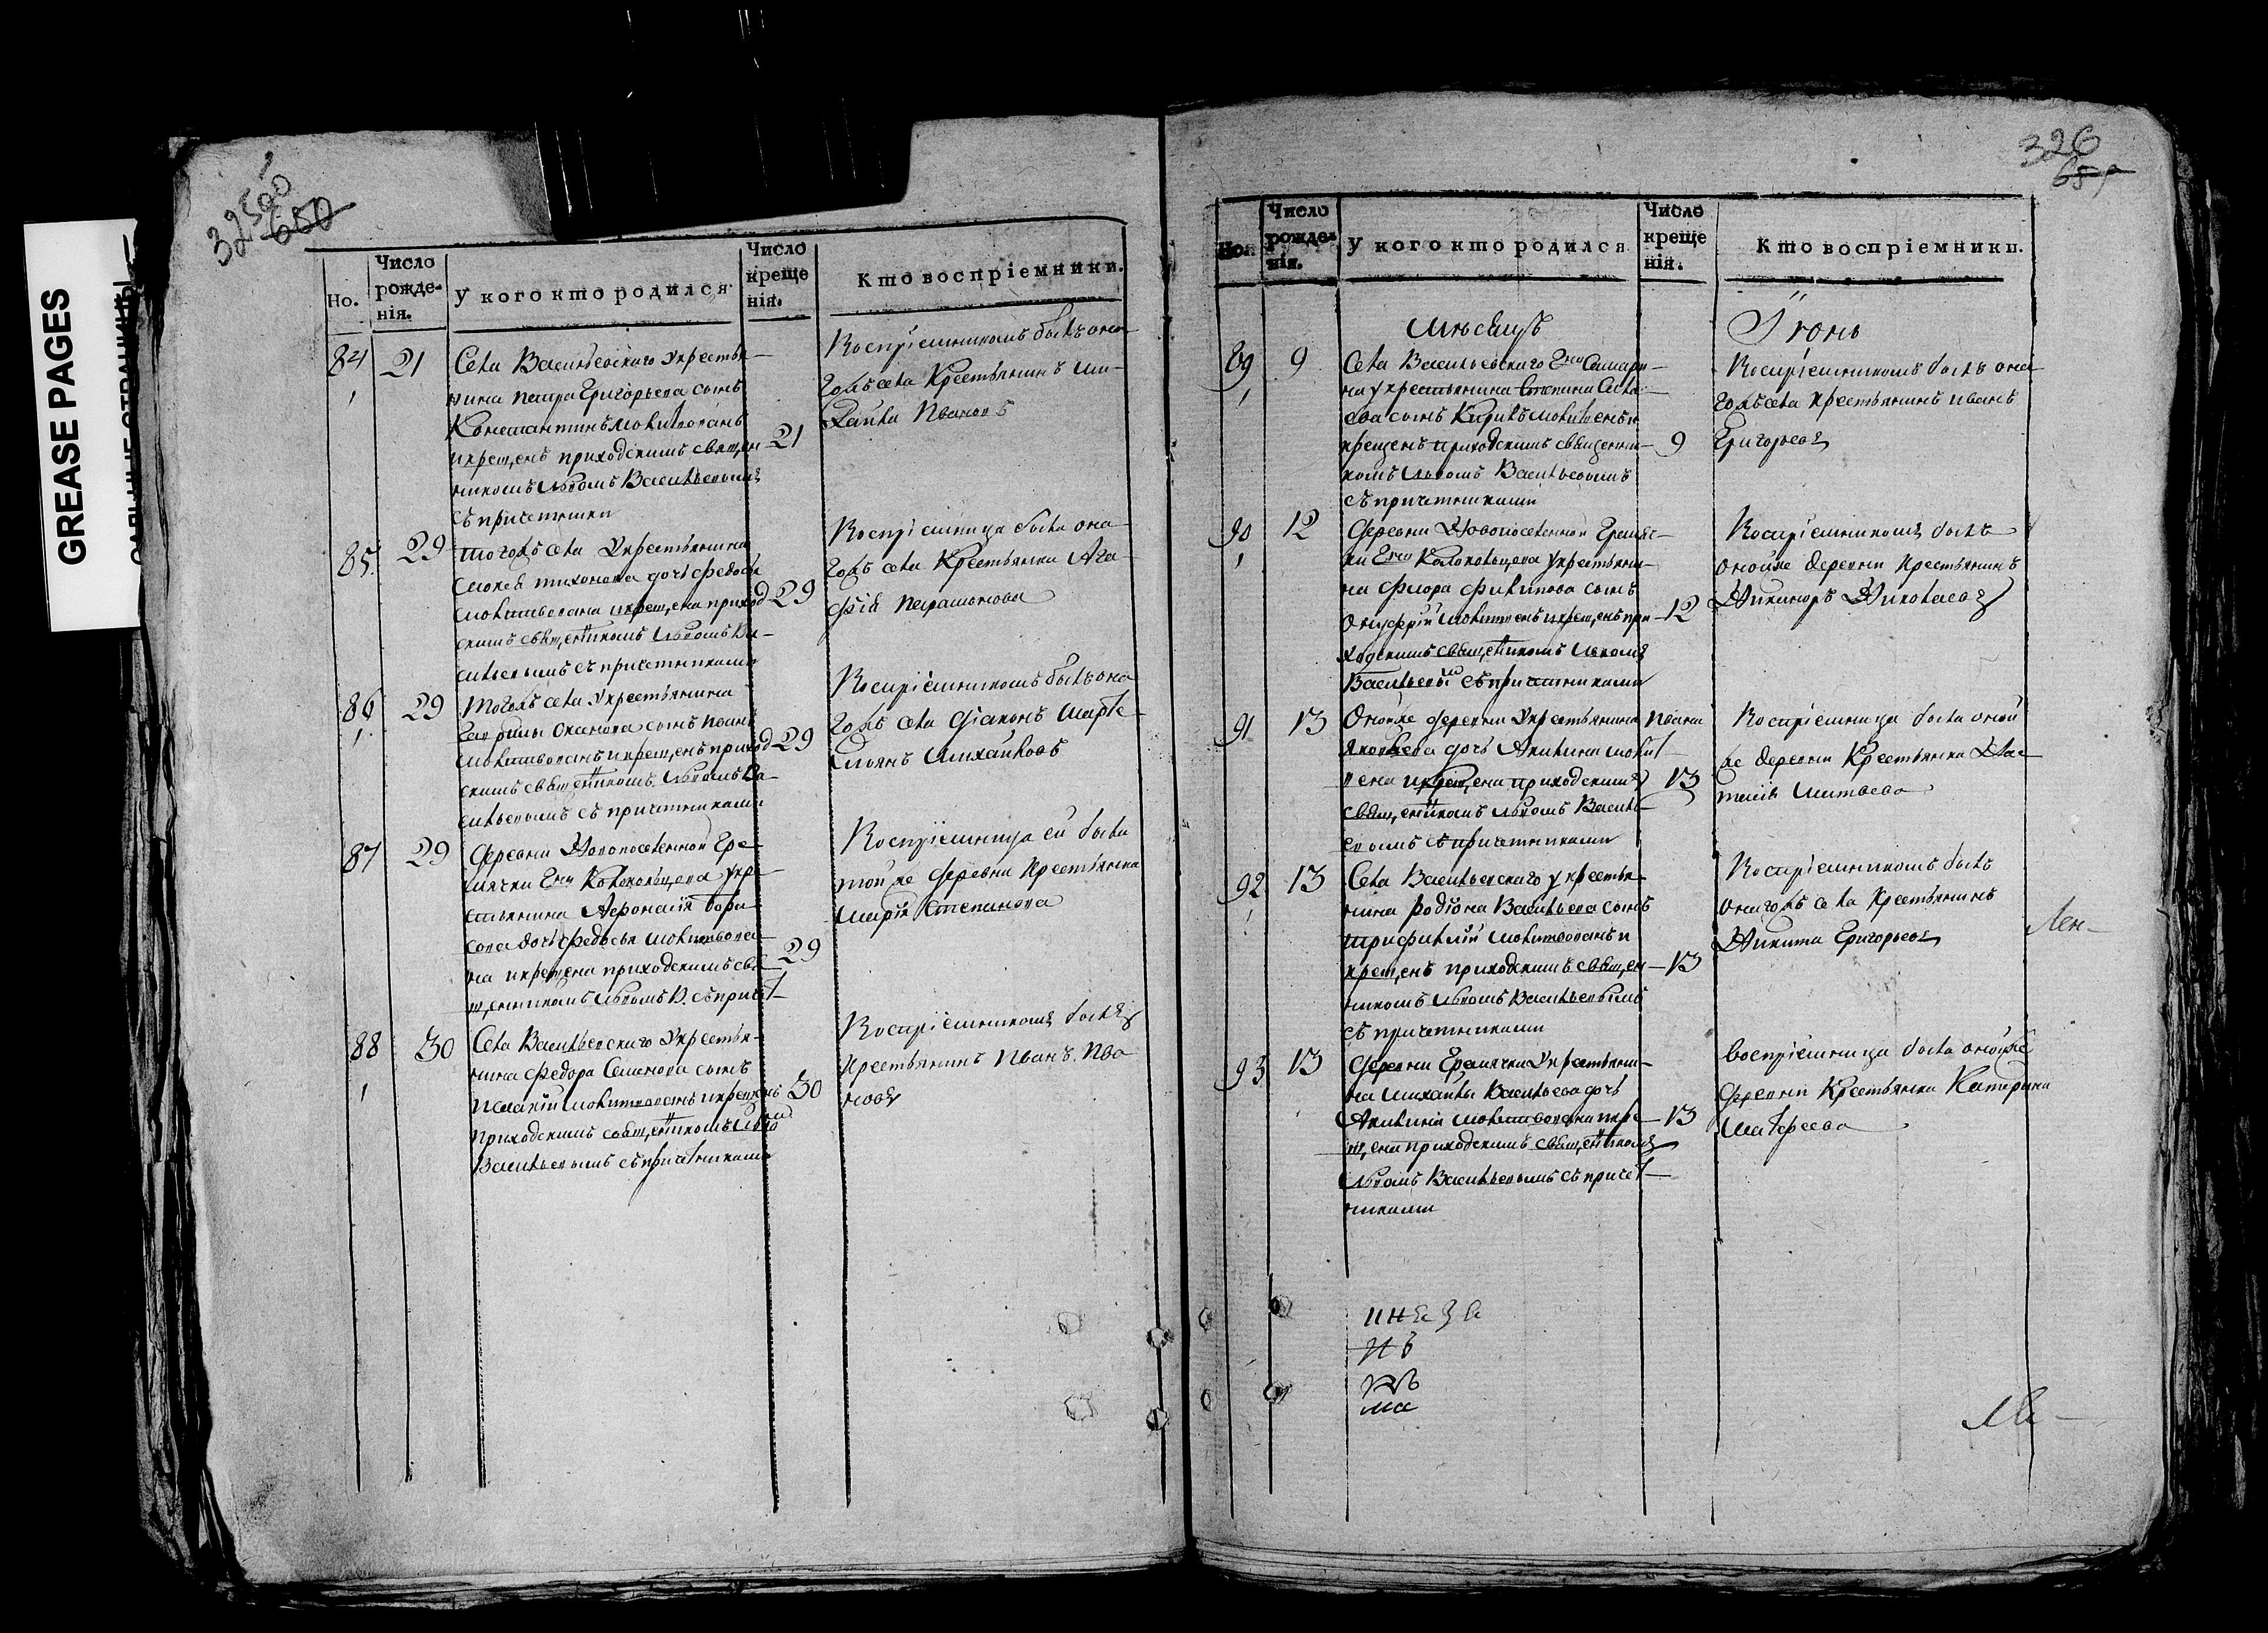 GREASE PAGES
САЛЬНЫЕ СТРАНИЦЫ
325об
650
Но.
Число рожденія.
У кого кто родился
Число крещенія.
Кто воспріемники.
84
21
Села Васильевского укрестья-
нина петра Григорьева сынъ
Константинъ молитвованъ
икрещенъ приходскимъ священ
никомъ Львомъ Васильевымъ
съ причетники
21
Воспріемникомъ былъ она
гожъ села Крестьянинъ ми-
хайла Ивановъ
85
29
тогожъ села Укрестьянина
тихонова дочь федосья
молитвована икрещена приход
скимъ священникомъ Львомъ Ва-
сильевымъ съ причетниками
29
Воспріемница была она
гожъ села Крестьянка Ага
фія
86
29
Тогожъ села укрестьянина
Гаврилы сынъ иванъ
молитвованъ икрещенъ приход
скимъ священникомъ Львомъ Ва-
сильевымъ съ причетниками
29
Воспріемникомъ былъ она
гожъ села діаконъ
Михайловъ
87
29
Деревни Новопоселенной Ере
мячки Гна Колокольцева укре
стьянина Афонасія бори
сова дочь федосья молитвова
на икрещена приходскимъ свя
щенникомъ Львомъ В. съ причет
29
Воспріемница ей была
тойже деревни Крестьянка
Марія Степанова
88
30
Села Васильевского Укрестья-
нина Федора Семенова сынъ
Исакій молитвованъ икрещенъ
приходскимъ священникомъ Львом
Васильевымъ съ причетниками
30
Воспріемникомъ былъ
Крестьянинъ Иванъ Ива
новъ
326
651
Но.
Число рожденія.
У кого кто родился
Число крещенія.
Кто воспріемники.
Мѣсяцъ
Іюнь
89
9
Села Васильевского Гна Самари
на укрестьянина Степана Савел
ева сынъ Кирилъ молитвенъ и
крещенъ приходскимъ священни-
комъ Львомъ Васильевымъ
съ причетниками
9
Воспріемникомъ былъ она
гожъ села Крестьянинъ иванъ
Григорьевъ
90
12
Деревни Новопоселенной Еремяч-
ки Гна Колокольцева укрестьяни-
на Флора Филипова сынъ
Онуфрій молитвенъ икрещенъ при
ходскимъ священникомъ Львомъ
Васильевым съ причетниками
12
Воспріемникомъ былъ
онойже деревни Крестьянинъ
Никифоръ Николаевъ
91
13
Онойже деревни Укрестьянина Ивана
Яковлева дочь Акилина молит
вена икрещена приходскимъ
священникомъ Львомъ Василь
евымъ съ причетниками
13
Воспріемница была оной
же деревни Крестьянка Нас
тасія Матвеева
92
13
Села Васильевского укрестья-
нина Родіона Васильева сынъ
Трифилій молитвованъ и
крещенъ приходскимъ священ
никомъ Львомъ Васильевымъ
съ причетниками
13
Воспріемникомъ былъ
онагожъ села Крестьянинъ
Никита Григорьевъ
93
13
Деревни Еремячки Укрестьяни-
на Михайлы Васильева дочь
Акилина молитвована икре
щена приходскимъ священникомъ
Львомъ Васильевымъ съ причет
никами
13
Воспріемница была онойже
деревни Крестьянка Катерина
Матфеева